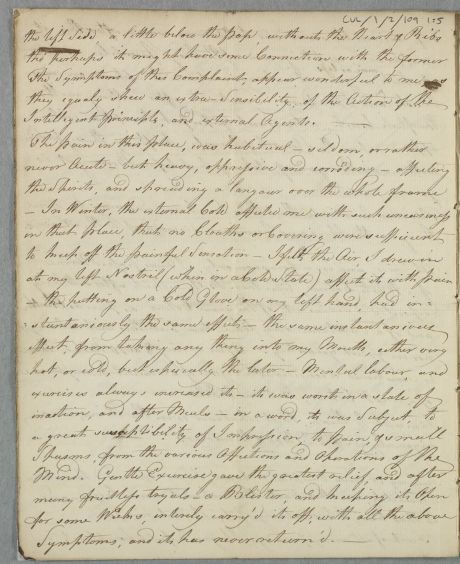 CUL/1/2/109 1:5
the left side a little below the Pap without the Heart & Ribs
tho' perhaps it might have some Connection with the former
The Symptoms of this Complaint, appear wonderful to me, as
they equaly shew an extra-Sensibility of the Action of the
Intelligent Principle, and external Agents. —
The Pain in this place, was habitual — seldom, or rather
never Acute — but heavy, oppressive and corroding — affecting
the Spirits, and spreading a langour over the whole frame
— In Winter, the external Cold affected me with such uneasiness
in that place, that no Cloaths or Covering were sufficient
to keep off the painful Sensation — I felt the Air I drew in
at my left Nostril (when in a Cold State) affect it with pain
— the putting on a Cold Glove on my left hand, had in-
:stantaniously the same effect — the same instantanious
effect, from taking any thing into my Mouth, either very
hot, or cold, but especially the later — Mental labour, and
exercise always increased it — it was worst in a state of
inaction, and after Meals — in a word, it was Subject to
a great susceptibility of Impression, to Pain & small
Spasms, from the various Affections and Operations of the
Mind. Gentle Exercise gave the greatest relief, and after
many fruitless tryals — a Blister, and keeping it Open
for some Weeks, intirely carry'd it off, with all the above
Symptoms; and it has never return'd. —